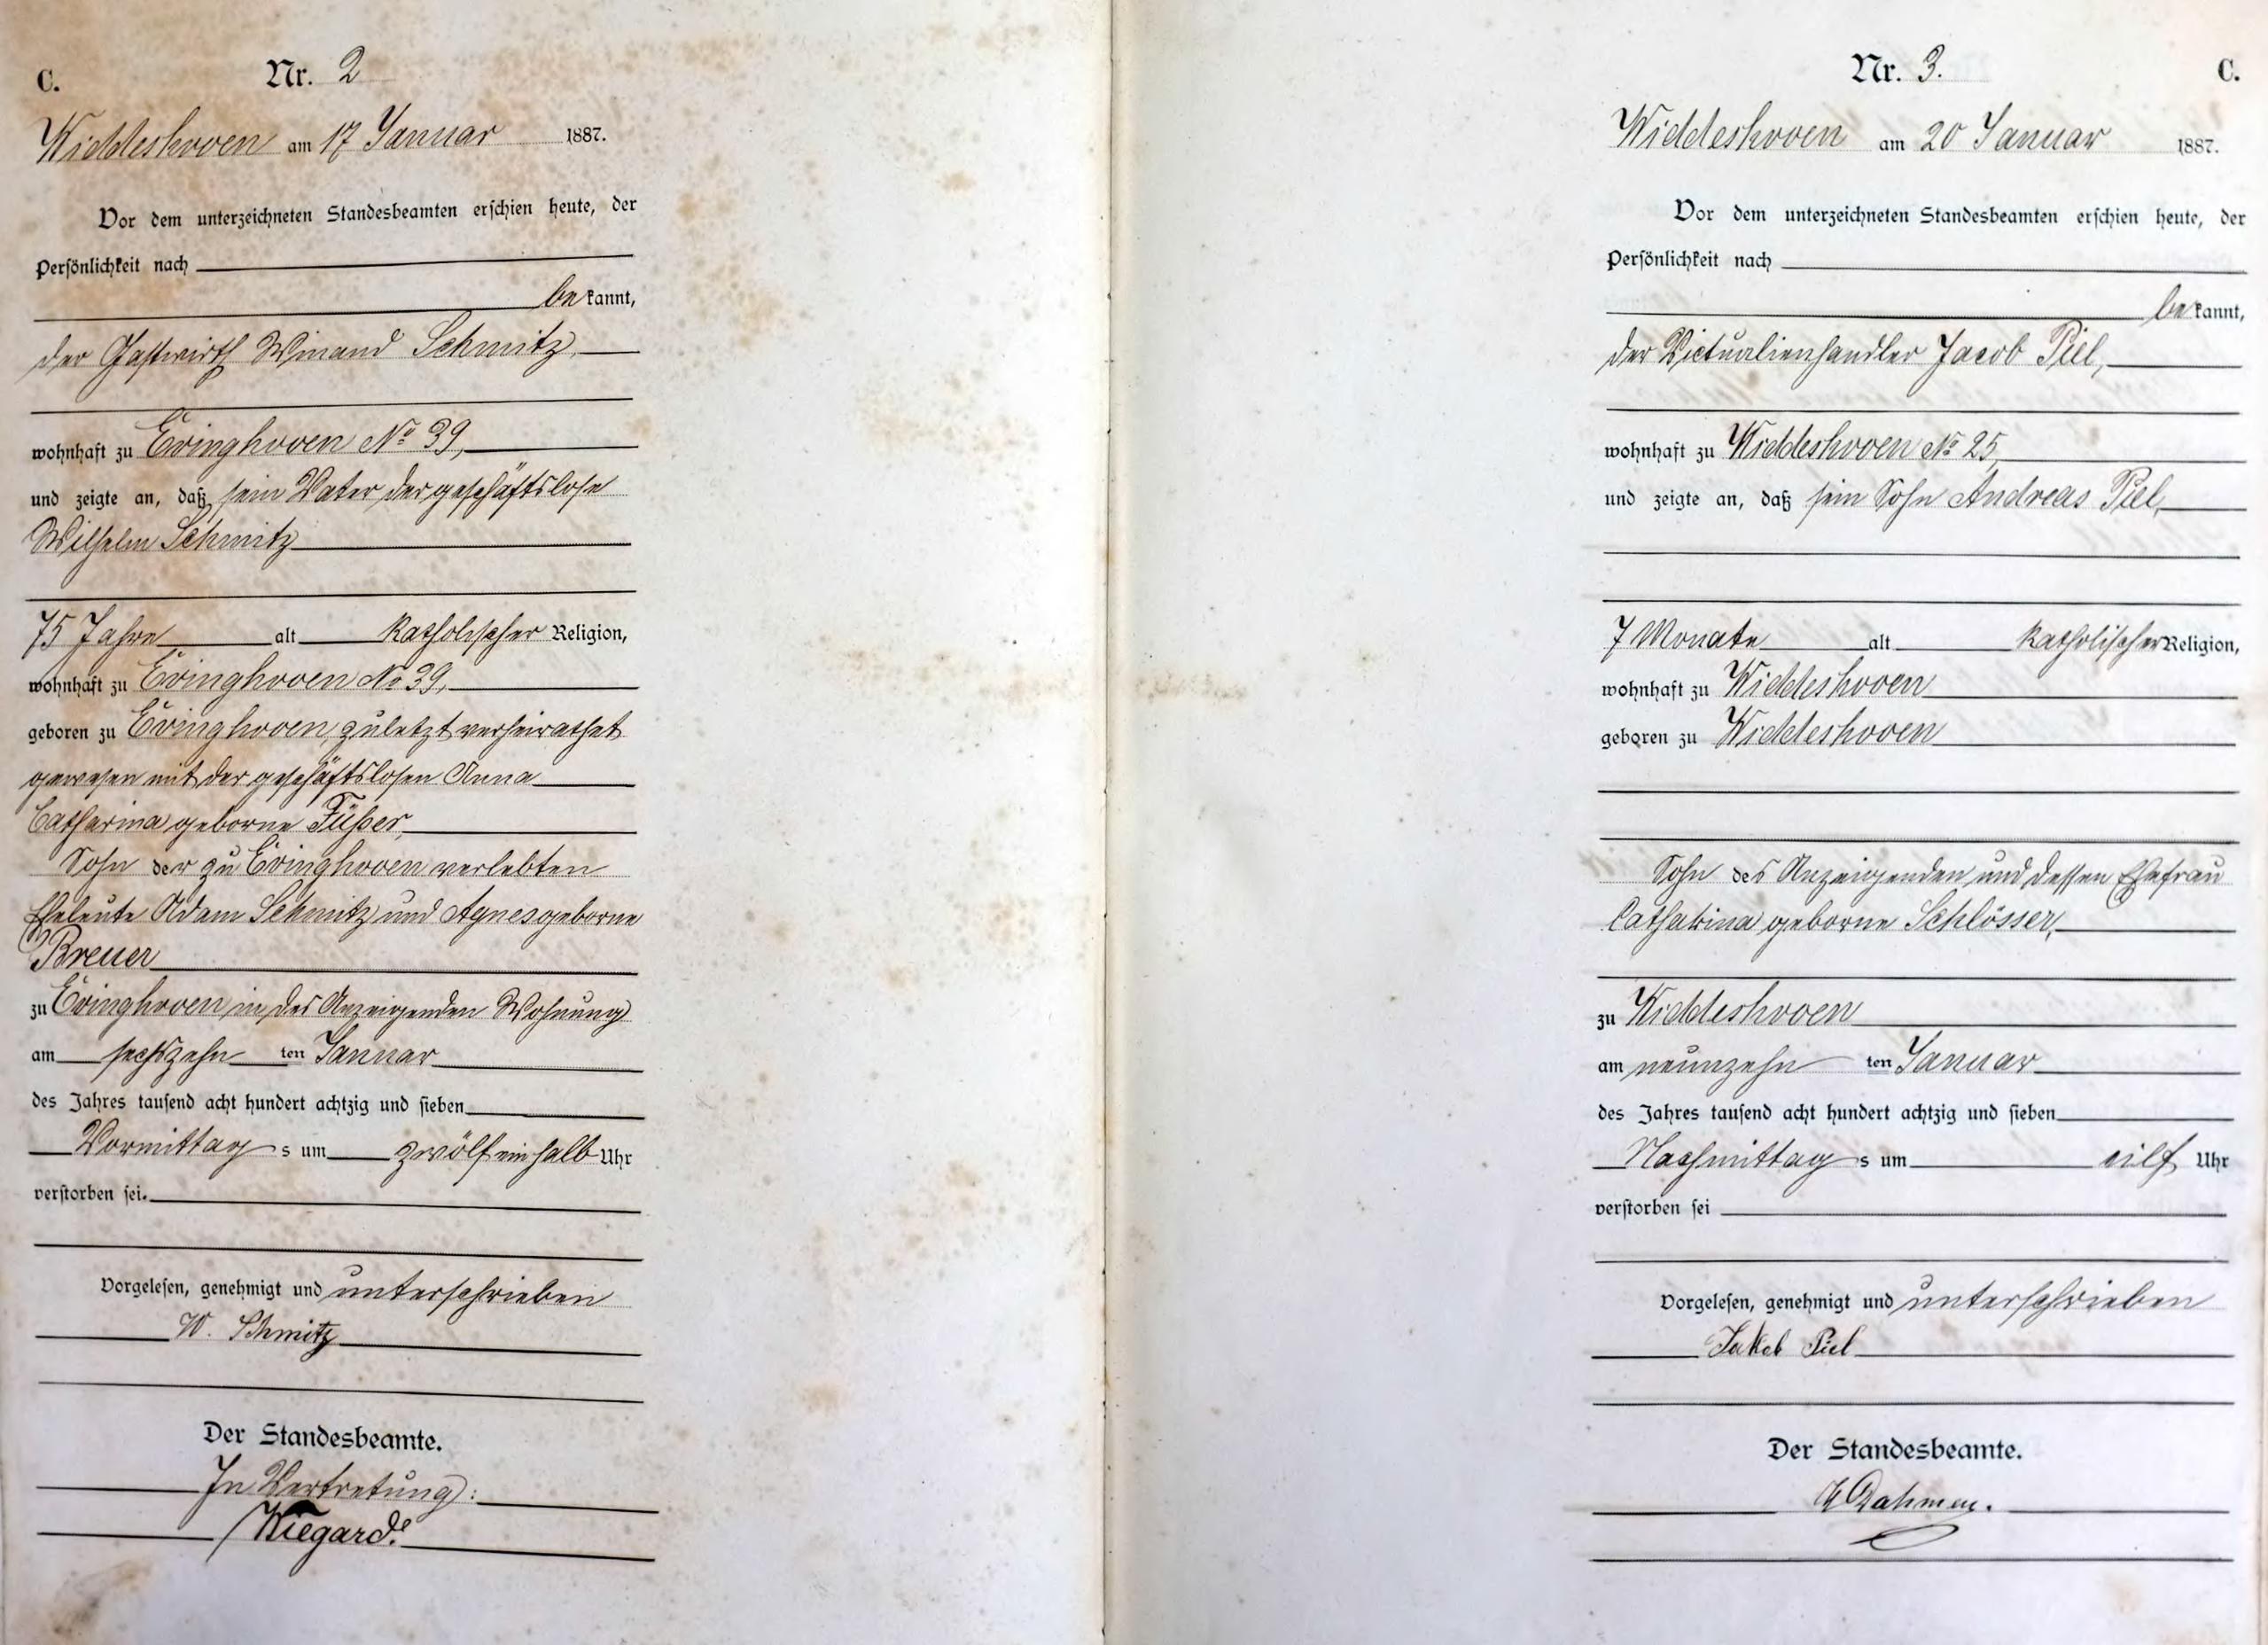 C.
Nr. 2
Widdeshoven am 17 Januar 1887.
Vor dem unterzeichneten Standesbeamten erschien heute, der
Persönlichkeit nach
bekannt,
der Gastwirth Winand Schmitz,
wohnhaft zu Evinghoven No 39,
und zeigte an, daß sein Vater der geschäftslose
Wilhelm Schmitz
75 Jahre alt katholischer Religion,
wohnhaft zu Evinghoven No 39,
geboren zu Evinghoven, zuletzt verheirathet
gewesen mit der geschäftslosen Anna
Catharina geborne Füßer,
Sohn der zu Evinghoven verlebten
Eheleute Adam Schmitz und Agnes geborne
Breuer
zu Evinghoven in des Anzeigenden Wohnung
am sechszehn ten Januar
des Jahres tausend acht hundert achtzig und sieben
Vormittag s um zwölf ein halb Uhr
verstorben sei.
Vorgelesen, genehmigt und unterschrieben
W. Schmitz
Der Standesbeamte.
In Vertretung:
Wiegard.
Nr. 3.
C.
Widdeshoven am 20 Januar 1887.
Vor dem unterzeichneten Standesbeamten erschien heute, der
Persönlichkeit nach
bekannt,
der Victualienhandler Jacob Piel,
wohnhaft zu Widdeshoven No 25,
und zeigte an, daß sein Sohn Andreas Piel,
7 Monate alt katholischer Religion,
wohnhaft zu Widdeshoven
geboren zu Widdeshoven
Sohn des Anzeigenden und dessen Ehefrau
Catharina geborne Schlösser,
zu Widdeshoven
am neunzehn ten Januar
des Jahres tausend acht hundert achtzig und sieben
Nachmittag s um eilf Uhr
verstorben sei
Vorgelesen, genehmigt und unterschrieben
Jakob Piel
Der Standesbeamte.
Dahmen.